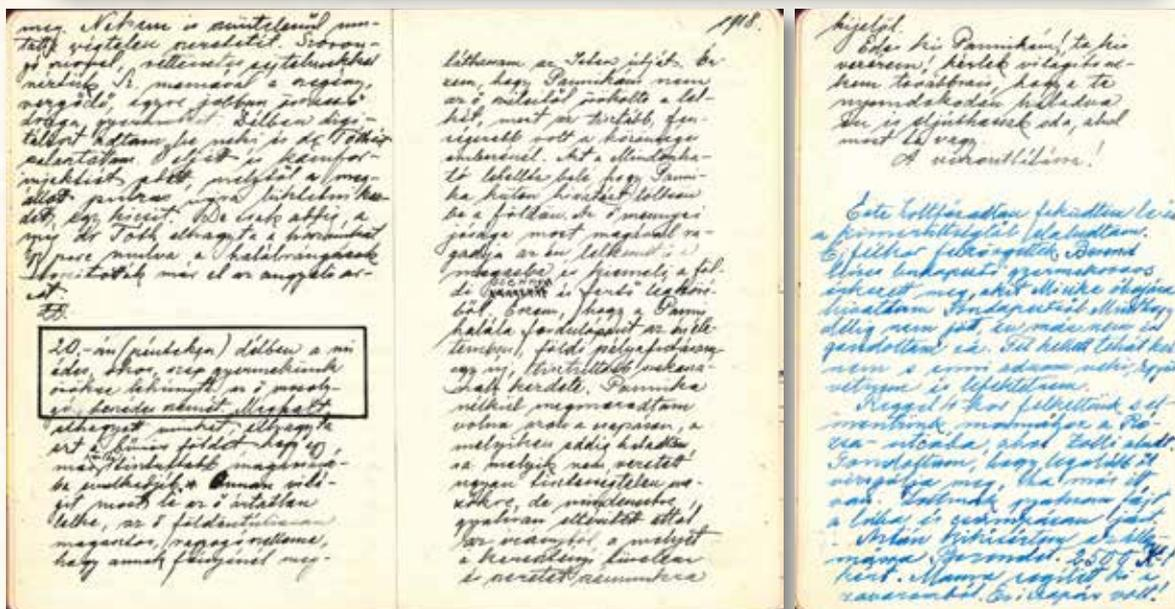 meg. Nekem is szüntelenül mu-
tatja végtelen szeretetét. Szoron-
gó szívvel, sejtelmekkel
néztük Sz. mamával a szegény,
vergődő, egyre jobban
drága gyermeket. Délben digi-
táliszt adtam be neki és dr. Tóthot
is kámfor-
injekciót adott, melytől a meg-
állott pulzus újra lüktetni kez-
dett egy kicsit. De csak addig, a
míg dr. Tóth elhagyta a házunkat
perc mulva a halálhörgések
már el az angyali ar-
cot.
20.-án (pénteken) délben a mi
édes, okos, szép gyermekünk
örökre lehunyta az ő mosoly-
gó, beszédes szemét. Meghalt,
elhagyott minket, elhagyta
ezt a bűnös földet, hogy egy
más, tisztultabb
ba. Onnan vilá-
gít most le az ő ártatlan
lelke, az ő földöntúli
magasztos, ragyogó szelleme,
hogy annak fényénél meg-
1918.
láthassam az Isten útját. Ér-
zem, hogy Pannikám nem
az ő szüleitől örökölte a lel-
két, mert az tisztább, fen-
ségesebb volt a közönséges
emberénél. Azt a Mindenha-
tó lehellte belé, hogy Panni-
ka külön hivatást töltsön
be a földön. Az ő mennyei
jósága most magával ra-
gadja az én lelkemet is a
magasba és kiemeli a föl-
di piszkos és fertő légköré-
ből. Érzem, hogy a Panni
halála fordulópont az én éle-
temben, földi pályafutásom
egy új, tisztultabb
kezdete. Pannika
nélkül megmaradtam
volna azon a csapáson, a
melyiken eddig haladtam
s a melyik nem vezetett
ugyan tisztességtelen
de mindenesetre
gyakran ellentétes attól
az iránytól, a melyet
a keresztényi türelem
és szeretet számunkra
kijelöl.
Édes kis Pannikám! te kis
vezérem! kérlek világíts ne-
kem továbbra is, hogy a te
nyomdokodon haladva
én is eljuthassak oda, ahol
most te vagy.
A viszontlátásra!
Este holtfáradtan feküdtem le s
a kimerültségtől elaludtam.
Éjfélkor felzörgettek. Berend
Miksa budapesti gyermekorvos
érkezett meg, akit Micike óhajára
hivattam Budapestről. Minthogy
délig nem jött, én már nem is
gondoltam rá. Fel kellett tehát kel-
nem s enni adnom neki, ágyat
vetnem és lefektetnem.
Reggel 6 kor felkeltünk s el-
mentünk mamához a Ró-
zsa-utcába, ahol Zolti aludt.
Gondoltam, hogy legalább őt
vizsgálja meg, ha már itt
van. Zoltinak gyakran fájt
a lába és csámpásan járt.
Aztán kikísértem az állo-
másra Berendet. 2500 K-t
kért. Mama segített ki a
zavaromból.